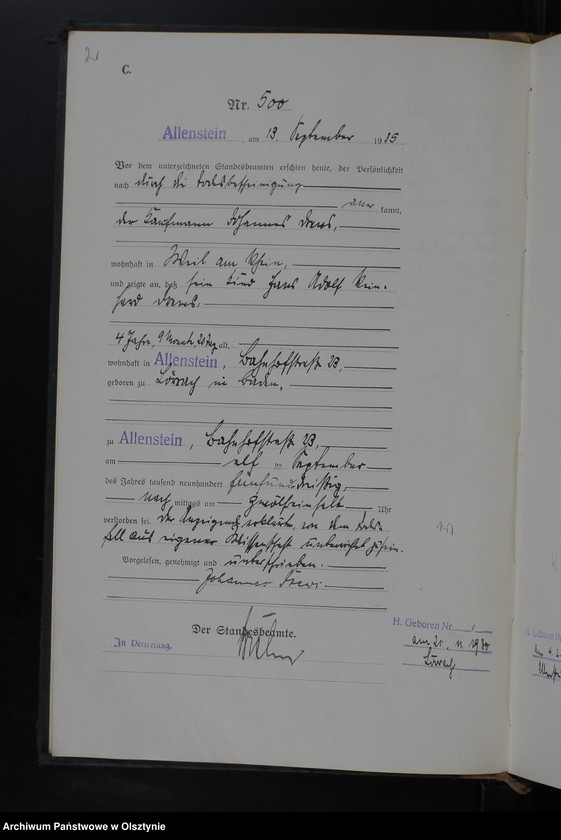 C.
Nr. 500
Allenstein, am 13. September 1935.
Vor dem unterzeichneten Standesbeamten erschien heute, der Persönlichkeit
nach durch die Todesbescheinigung
kannt,
der Kaufmann Johannes
wohnhaft in Weil am Rhein,
und zeigte an, daß sein Kind Hans Adolf Rein-
hard
4 Jahre, 9 Monate, alt,
wohnhaft in Allenstein, Bahnhofstraße 23,
geboren zu Lörrach in Baden,
zu Allenstein, Bahnhofstraße 23,
am elf ten September
des Jahres tausend neunhundert fünfunddreißig,
nach mittags um zwölfeinhalb Uhr
verstorben sei. Der Anzeigende erklärte, von dem Todes-
fall aus eigener Wissenschaft unterrichtet zu sein.
Vorgelesen, genehmigt und unterschrieben.
Johannes
Der Standesbeamte.
In Vertretung.
H. Geboren Nr. /
am 21. 11. 1930
Lörrach
Archiwum Państwowe w Olsztynie